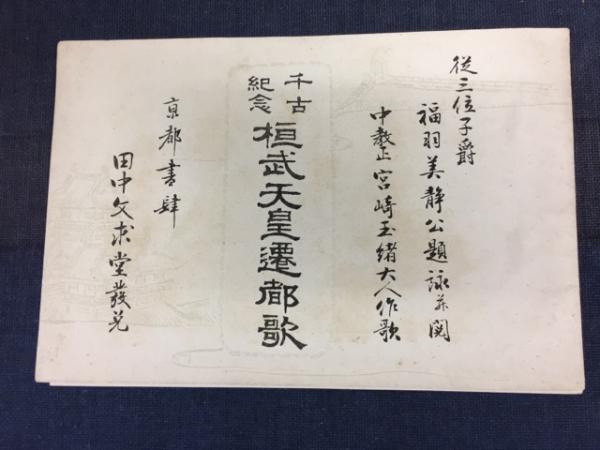 従三位子爵
福羽美静公題詠并閲
中教正宮崎玉緒大人作歌
千古
紀念
桓武天皇遷都歌
京都書肆
田中文求堂發兌